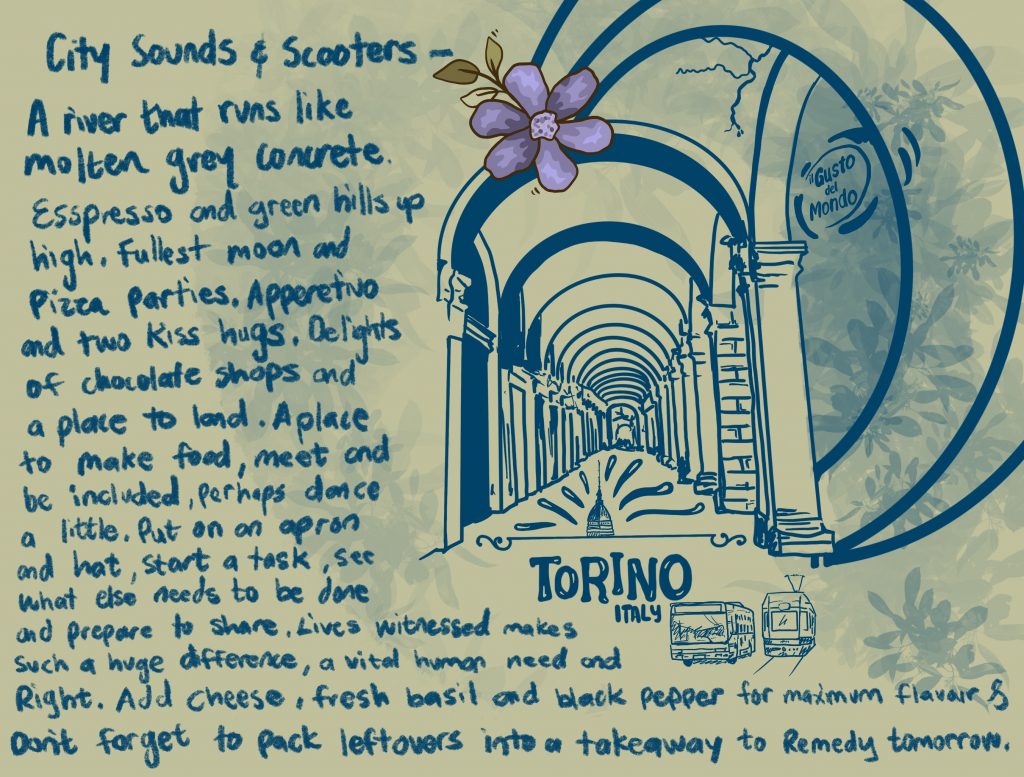 City Sounds & Scooters –
A river that runs like
molten grey concrete.
Esspresso and green hills up
high. Fullest moon and
Pizza parties. Apperetivo
and two Kiss hugs. Delights
of chocolate shops and
a place to land. A place
to make food, meet and
be included, perhaps dance
a little. Put on an apron
and hat, start a task, see
what else needs to be done
and prepare to share. Lives witnessed makes
such a huge difference, a vital human need and
Right. Add cheese, fresh basil and black pepper for maximum flavair &
Don't forget to pack leftovers into a takeaway to Remedy tomorrow.
il Gusto
del
Mondo
TORINO
ITALY
4